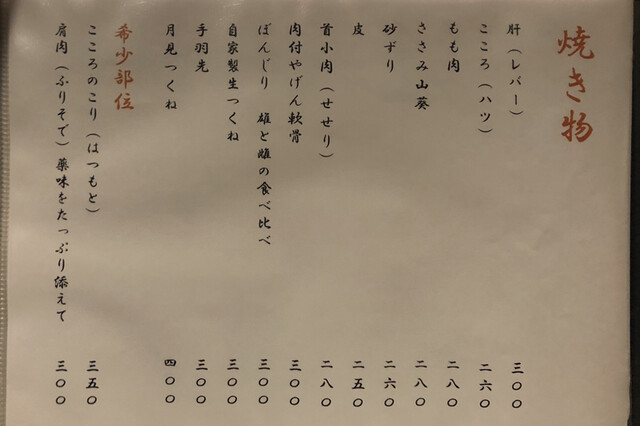 焼き物
肝（レバー） 三〇〇
こころ（ハツ） 二六〇
もも肉 二八〇
ささみ山葵 二八〇
砂ずり 二六〇
皮 二五〇
首小肉（せせり） 二八〇
肉付やげん軟骨 三〇〇
ぼんじり 雄と雌の食べ比べ 三〇〇
自家製生つくね 三〇〇
手羽先 三〇〇
月見つくね 四〇〇
希少部位
こころのこり（はつもと） 三五〇
肩肉（ふりそで）薬味をたっぷり添えて 三〇〇